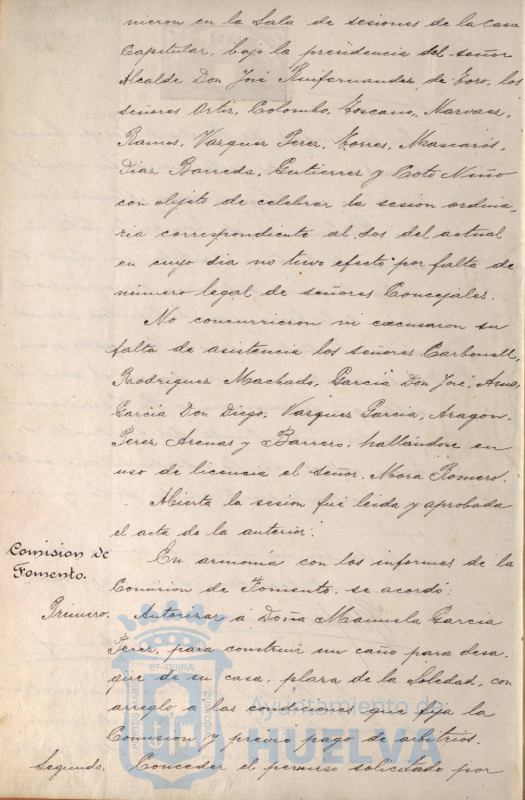 nieron en la Sala de sesiones de la Casa
Capitular, bajo la presidencia del señor
Alcalde Don José Ruifernandez de Toro, los
señores Ortiz, Colombo, Toscano, Narvaez,
Ramos, Vazquez Perez, Torres, Mascarós,
Diaz Barreda, Gutierrez y Coto Niño
con objeto de celebrar la sesion ordina-
ria correspondiente al dos del actual
en cuyo dia no tuvo efecto por falta de
número legal de señores Concejales.
No concurrieron ni excusaron su
falta de asistencia los señores Carbonell,
Rodriguez Machado, Garcia Don José,
Garcia Don Diego, Vazquez Garcia, Aragon,
Perez Arenas y Barrero, hallándose en
uso de licencia el señor Mora Romero.
Abierta la sesion fué leida y aprobada
el acta de la anterior.
Comision de
Fomento.
En armonía con los informes de la
Comision de Fomento, se acordó:
Primero. Autorizar á Doña Manuela Garcia
Perez, para construir un caño para desa-
gue de su casa, plaza de la Soledad, con
arreglo a las condiciones que fija la
Comision y previo pago de arbitrios.
Segundo. Conceder el permiso solicitado por
ET TERRÆ
PORTUS MARIS
CUSTODIA
Ayuntamiento de
HUELVA